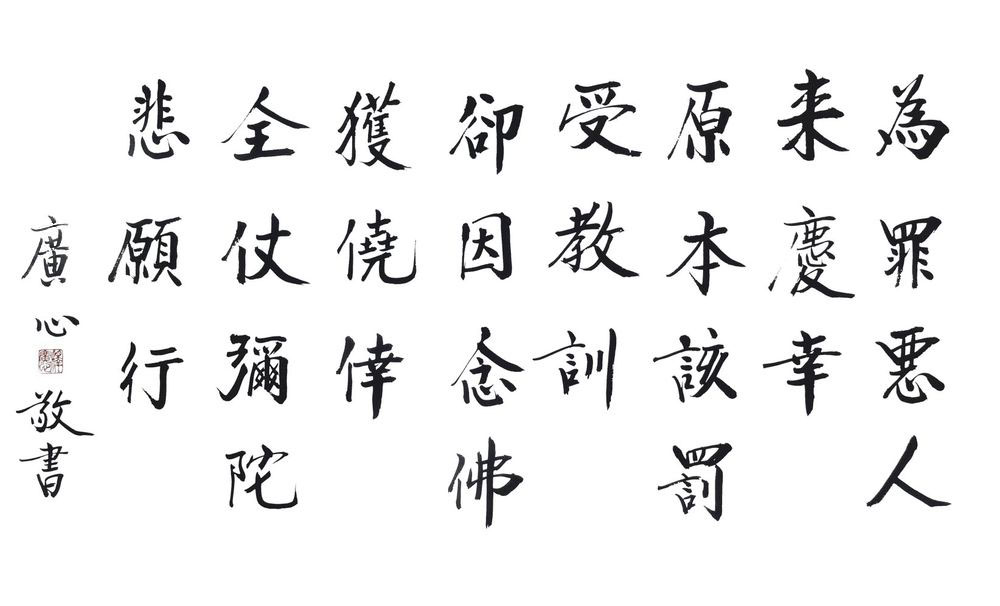 為罪悪人
来慶幸
原本該罰
受教訓
卻因念佛
獲僥倖
全仗彌陀
悲願行
廣心敬書